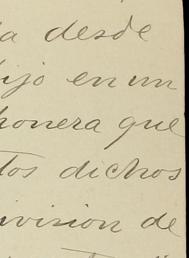 a desde
dijo en un
honera que
tos dichos
ivision de